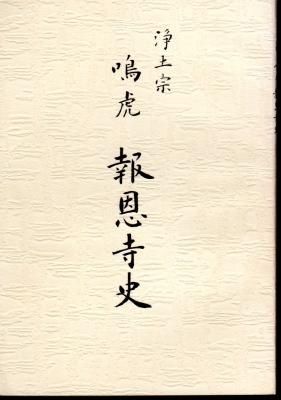 浄土宗
鳴虎
報恩寺史